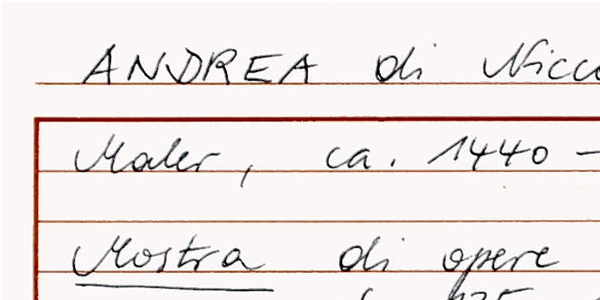 ANDREA di Nicco
Maler, ca. 1440 –
Mostra di opere